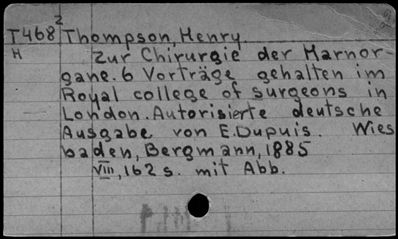 T468² Thompson, Henry
H Zur Chirurgie der Harnor-
gane. 6 Vorträge gehalten im
Royal college of surgeons in
London. Autorisierte deutsche
Ausgabe von E. Dupuis. Wies
baden, Bergmann, 1885
VIII, 162 s. mit Abb.